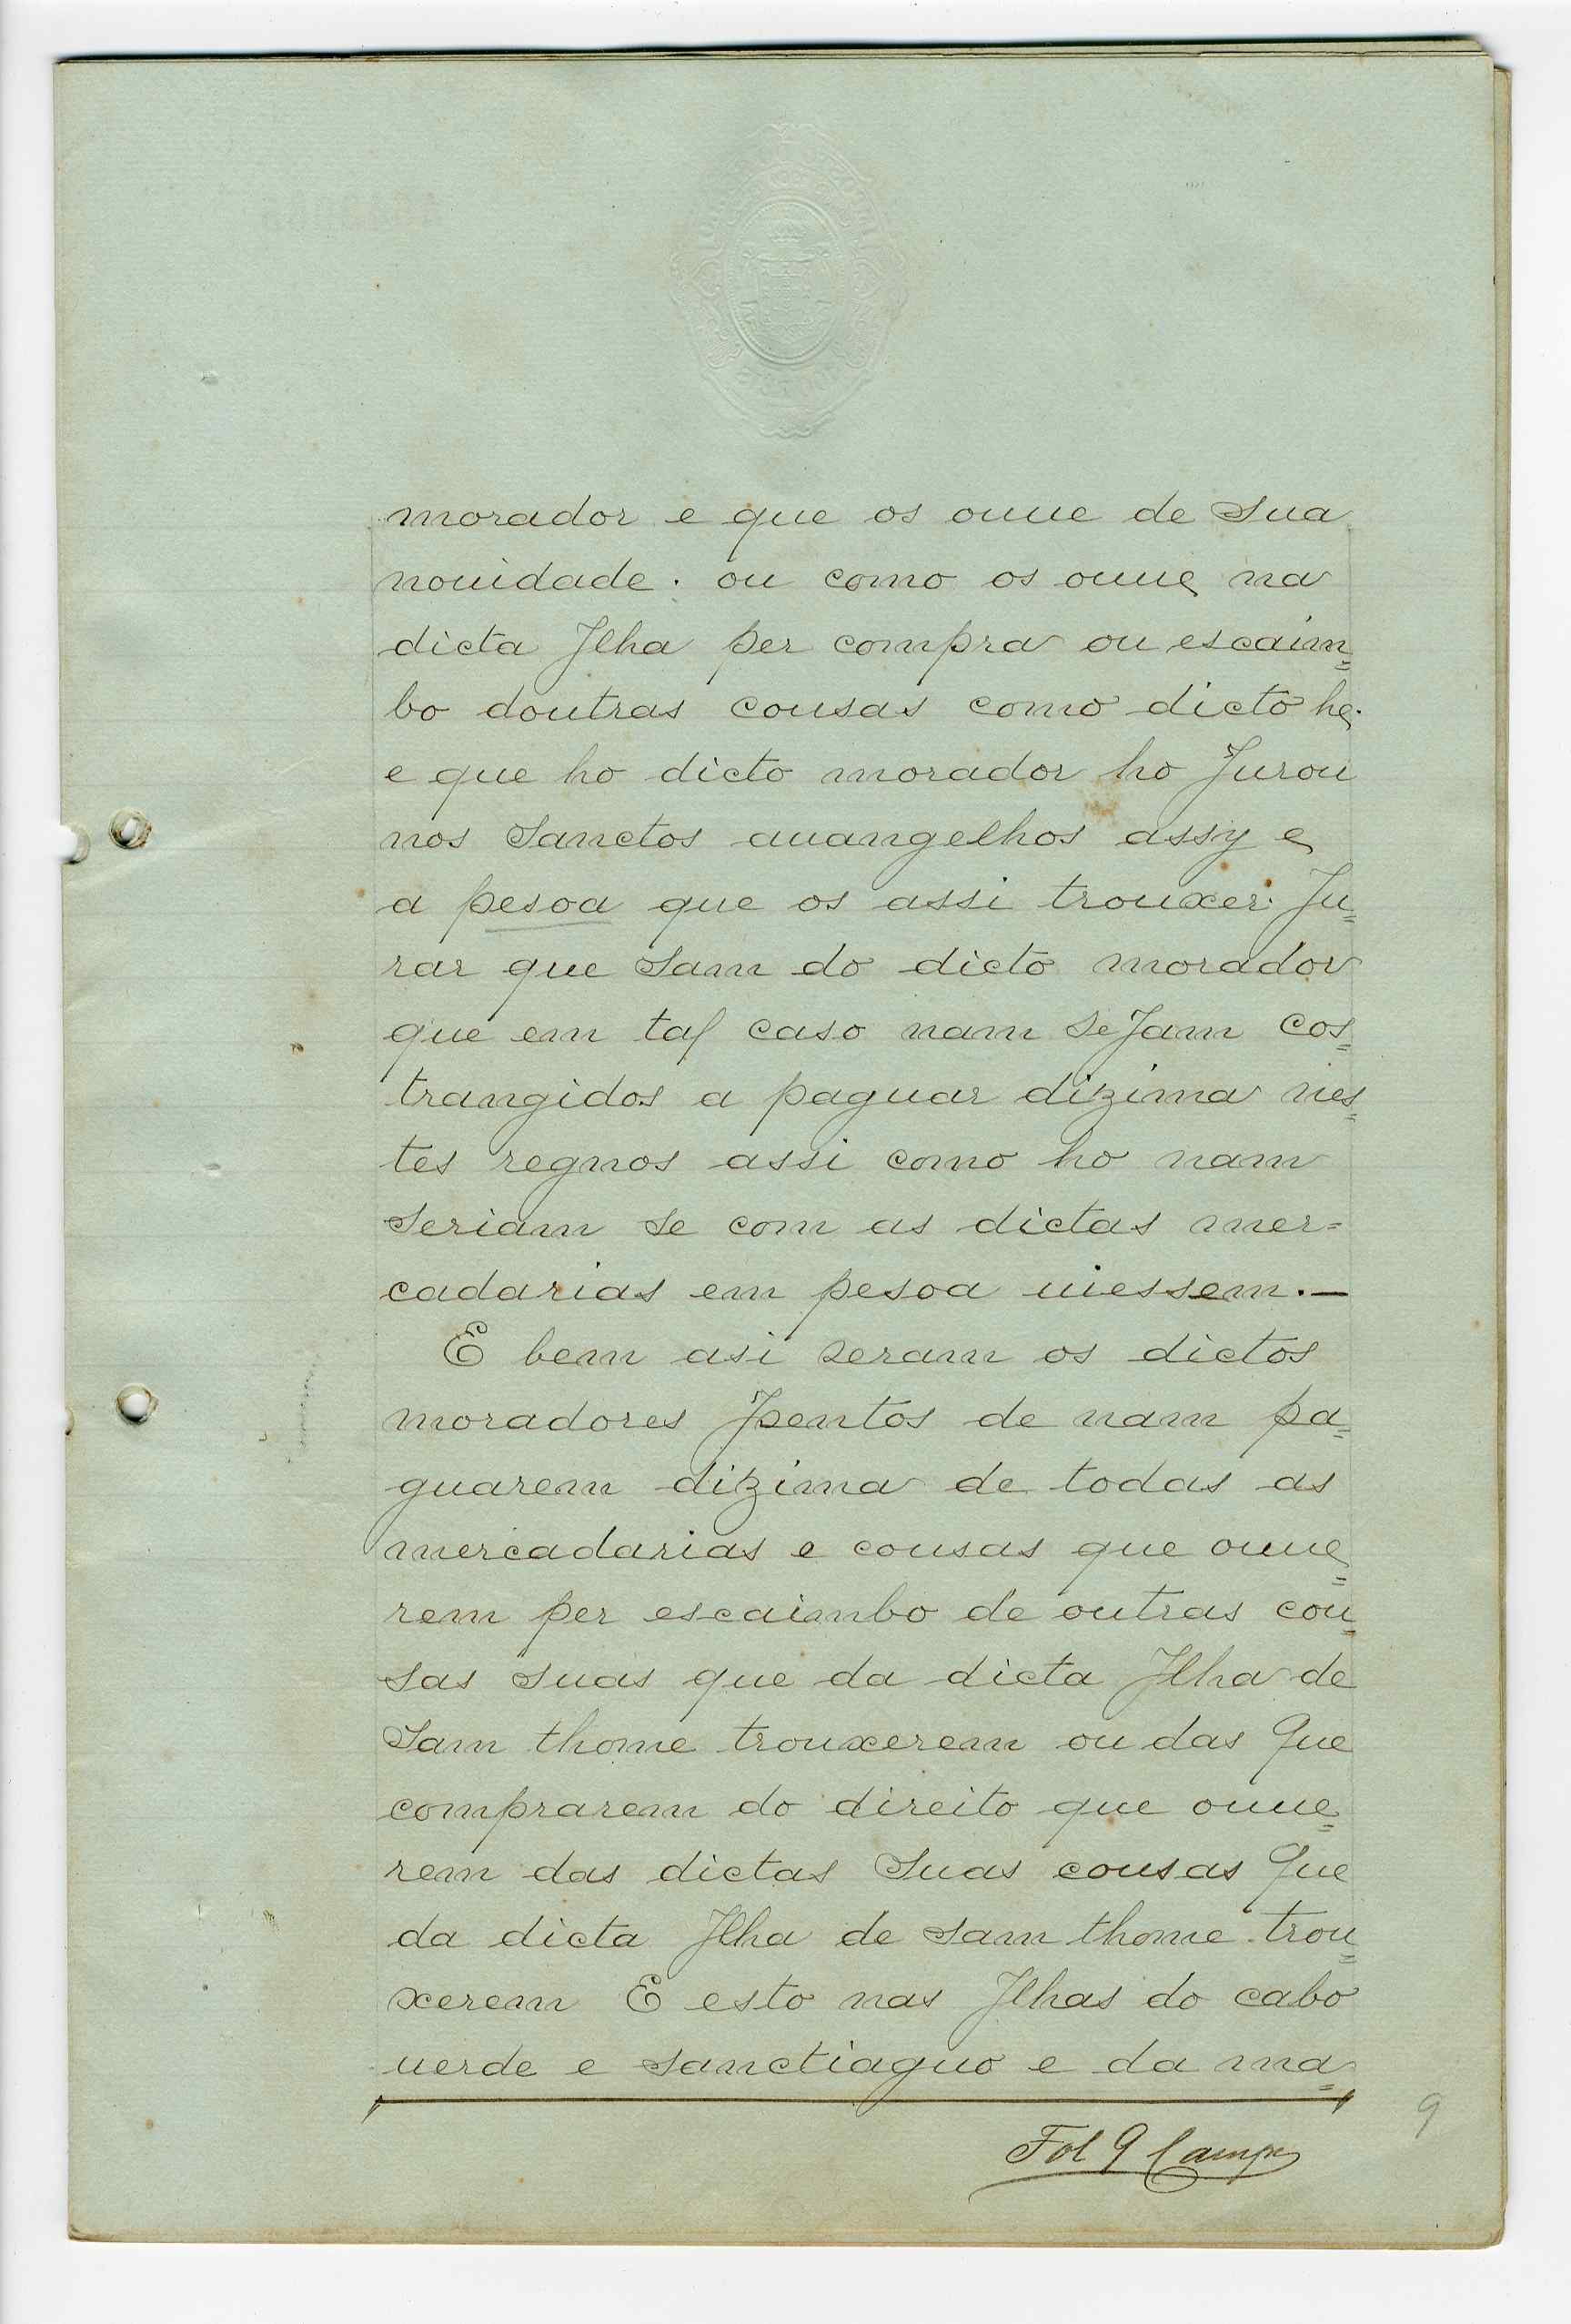 morador e que os ouue de Sua
nouidade. ou como os ouue na
dicta Jlha per compra ou escaim=
bo doutras cousas como dicto he.
e que ho dicto morador ho Jurou
nos Sanctos auangelhos assy e
a pesoa que os assi trouxer. Ju=
rar que Sam do dicto morador
que em tal caso nam SeJam Cos=
trangidos a paguar dizima nes=
tes regnos assi como ho nam
Seriam Se com as dictas mer=
cadarias em pesoa uiessem.—
E bem asi Seram os dictos
moradores Jsentos de nam pa=
guarem dizima de todas as
mercadarias e cousas que ouue=
rem per escaimbo de outras cou=
sas suas que da dicta Jlha de
Sam thome trouxerem ou das Que
comprarem do direito que ouue=
rem das dictas Suas cousas Que
da dicta Jlha de Sam thome trou=
xerem E esto nas Jlhas do cabo
uerde e Sanctiaguo e da ma=
Fol 9
9